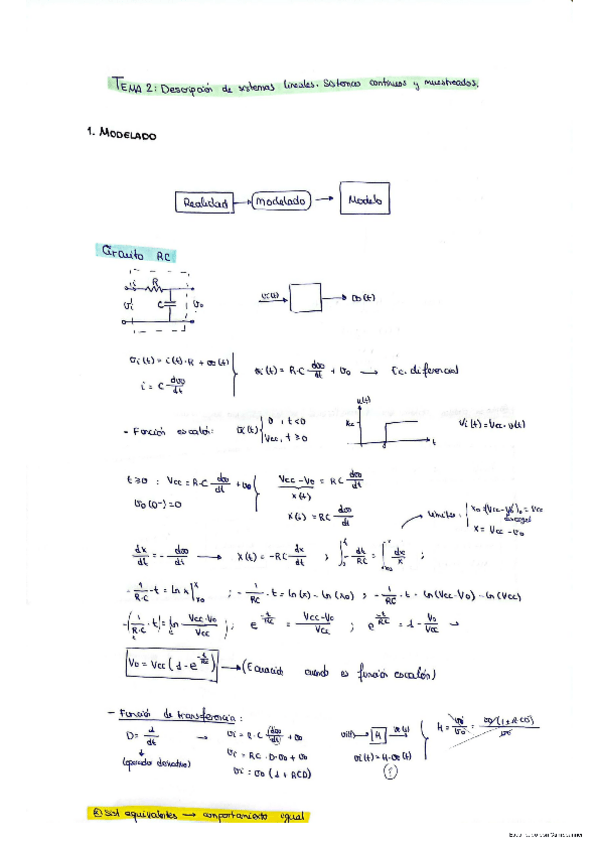 TEMA 2: Descripción de sistemas lineales. Sistemas continuos y muestreados.
1. MODELADO
Realidad → modelado → Modelo
Circuito RC
i R
vi C i vo
vi(t) → → vo(t)
vi(t) = i(t)·R + vo(t)
i = C dvo/dt
vi(t) = R·C dvo/dt + vo → Ec. diferencial
u(t)
- Función escalón: vi(t) { 0 , t<0
Vcc, t ≥ 0
Vcc
t
Vi(t) = Vcc·u(t)
t≥0 : Vcc = R·C dvo/dt + vo
vo(0-) = 0
Vcc - Vo = RC dvo/dt
x(t)
x(t) = RC dvo/dt
x = Vcc - vo
dx/dt = - dvo/dt → x(t) = -RC dx/dt ; ∫ - dt/RC = ∫ dx/x ;
- 1/R·C · t = ln x] ; - 1/RC · t = ln(x) - ln(xo) ; - 1/RC · t = ln(Vcc-Vo) - ln(Vcc)
-(1/R·C · t) = ln Vcc-Vo/Vcc ; e^-t/RC = Vcc-Vo/Vcc ; e^-t/RC = 1 - Vo/Vcc →
Vo = Vcc (1 - e^-t/RC) → (Ecuación cuando es función escalón)
- Función de transferencia:
D = d/dt → vi = R·C dvo/dt + vo
(operador derivativo)
vi = RC · D·vo + vo
vi = vo (1 + RCD)
vi(t) → H → vo(t)
H = vi/vo = vo(1+RCD)/vo
vi(t) = H·vo(t)
* Sist equivalentes → comportamiento igual